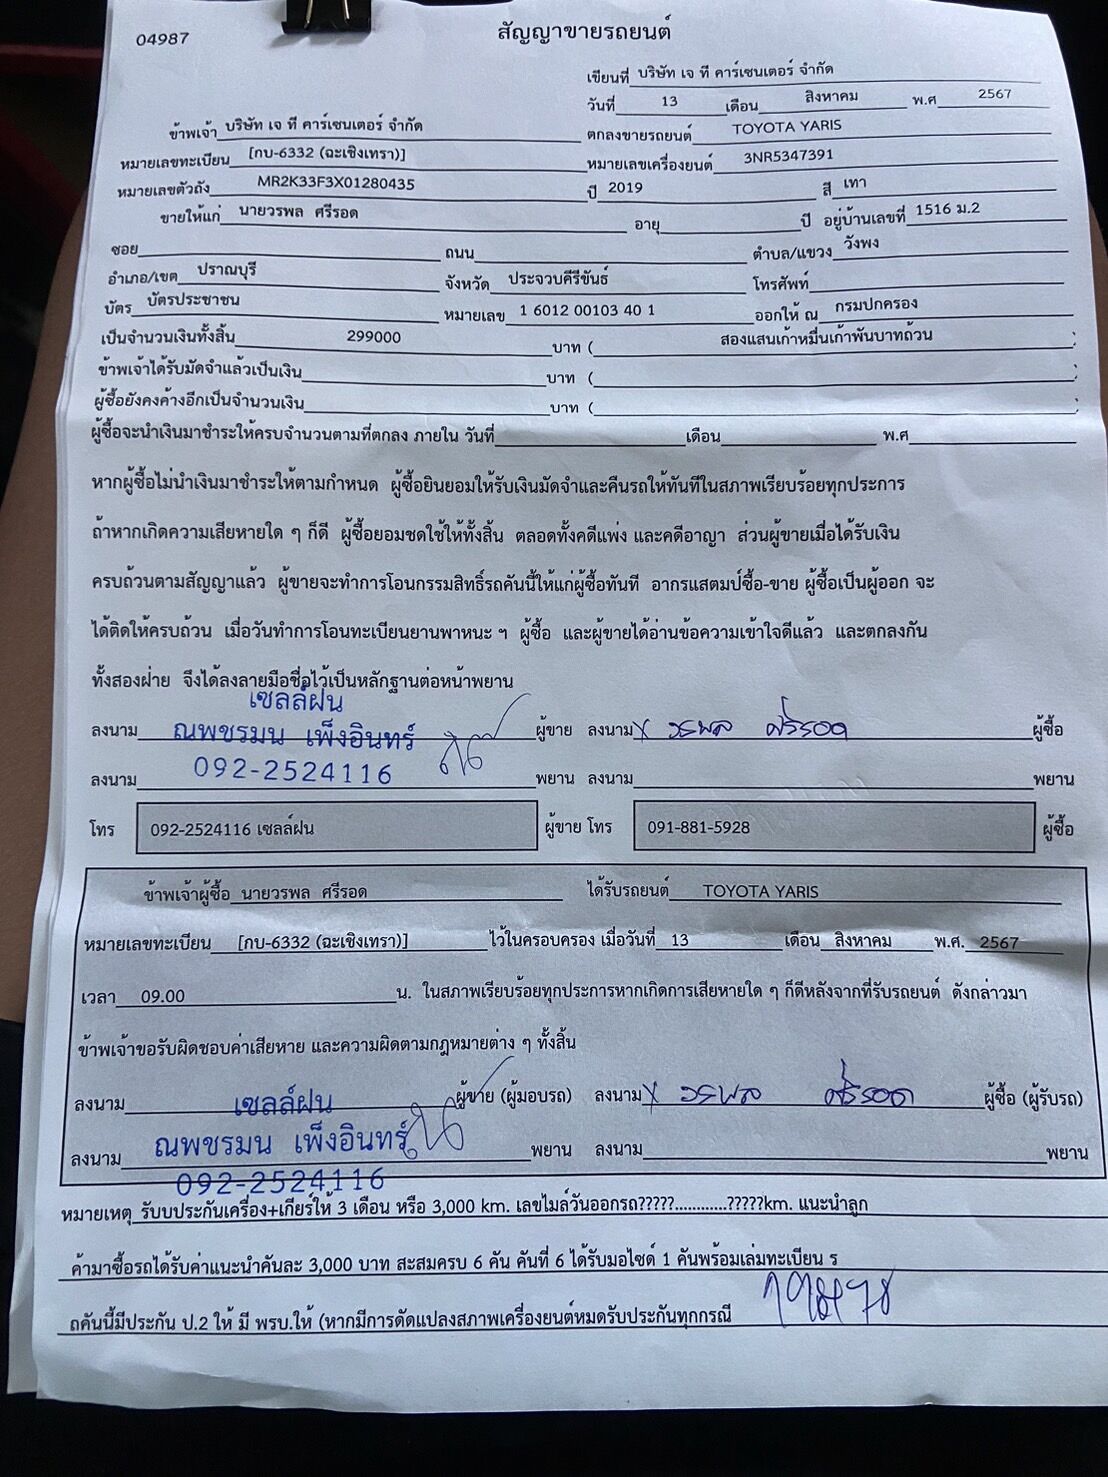 04987
สัญญาขายรถยนต์
เขียนที่ บริษัท เจ ที คาร์เซนเตอร์ จำกัด
วันที่ 13 เดือน สิงหาคม พ.ศ 2567
ข้าพเจ้า บริษัท เจ ที คาร์เซนเตอร์ จำกัด ตกลงขายรถยนต์ TOYOTA YARIS
หมายเลขทะเบียน [กบ-6332 (ฉะเชิงเทรา)] หมายเลขเครื่องยนต์ 3NR5347391
หมายเลขตัวถัง MR2K33F3X01280435 ปี 2019 สี เทา
ขายให้แก่ นายวรพล ศรีรอด อายุ ปี อยู่บ้านเลขที่ 1516 ม.2
ซอย ถนน ตำบล/แขวง วังพง
อำเภอ/เขต ปราณบุรี จังหวัด ประจวบคีรีขันธ์ โทรศัพท์
บัตร บัตรประชาชน หมายเลข 1 6012 00103 40 1 ออกให้ ณ กรมปกครอง
เป็นจำนวนเงินทั้งสิ้น 299000 บาท ( สองแสนเก้าหมื่นเก้าพันบาทถ้วน )
ข้าพเจ้าได้รับมัดจำแล้วเป็นเงิน บาท ( )
ผู้ซื้อยังคงค้างอีกเป็นจำนวนเงิน บาท ( )
ผู้ซื้อจะนำเงินมาชำระให้ครบจำนวนตามที่ตกลง ภายใน วันที่ เดือน พ.ศ
หากผู้ซื้อไม่นำเงินมาชำระให้ตามกำหนด ผู้ซื้อยินยอมให้รับเงินมัดจำและคืนรถให้ทันทีในสภาพเรียบร้อยทุกประการ
ถ้าหากเกิดความเสียหายใด ๆ ก็ดี ผู้ซื้อยอมชดใช้ให้ทั้งสิ้น ตลอดทั้งคดีแพ่ง และคดีอาญา ส่วนผู้ขายเมื่อได้รับเงิน
ครบถ้วนตามสัญญาแล้ว ผู้ขายจะทำการโอนกรรมสิทธิ์รถคันนี้ให้แก่ผู้ซื้อทันที อากรแสตมป์ซื้อ-ขาย ผู้ซื้อเป็นผู้ออก จะ
ได้ติดให้ครบถ้วน เมื่อวันทำการโอนทะเบียนยานพาหนะ ฯ ผู้ซื้อ และผู้ขายได้อ่านข้อความเข้าใจดีแล้ว และตกลงกัน
ทั้งสองฝ่าย จึงได้ลงลายมือชื่อไว้เป็นหลักฐานต่อหน้าพยาน
เซลล์ฝน
ลงนาม ณพชรมน เพ็งอินทร์ ผู้ขาย ลงนาม x วรพล ศรีรอด ผู้ซื้อ
ลงนาม 092-2524116 พยาน ลงนาม พยาน
โทร 092-2524116 เซลล์ฝน ผู้ขาย โทร 091-881-5928 ผู้ซื้อ
ข้าพเจ้าผู้ซื้อ นายวรพล ศรีรอด ได้รับรถยนต์ TOYOTA YARIS
หมายเลขทะเบียน [กบ-6332 (ฉะเชิงเทรา)] ไว้ในครอบครอง เมื่อวันที่ 13 เดือน สิงหาคม พ.ศ. 2567
เวลา 09.00 น. ในสภาพเรียบร้อยทุกประการหากเกิดการเสียหายใด ๆ ก็ดีหลังจากที่รับรถยนต์ ดังกล่าวมา
ข้าพเจ้าขอรับผิดชอบค่าเสียหาย และความผิดตามกฎหมายต่าง ๆ ทั้งสิ้น
ลงนาม เซลล์ฝน ผู้ขาย (ผู้มอบรถ) ลงนาม x วรพล ศรีรอด ผู้ซื้อ (ผู้รับรถ)
ลงนาม ณพชรมน เพ็งอินทร์ พยาน ลงนาม พยาน
092-2524116
หมายเหตุ รับบประกันเครื่อง+เกียร์ให้ 3 เดือน หรือ 3,000 km. เลขไมล์วันออกรถ?????............?????km. แนะนำลูก
ค้ามาซื้อรถได้รับค่าแนะนำคันละ 3,000 บาท สะสมครบ 6 คัน คันที่ 6 ได้รับมอไซด์ 1 คันพร้อมเล่มทะเบียน ร
ถคันนี้มีประกัน ป.2 ให้ มี พรบ.ให้ (หากมีการดัดแปลงสภาพเครื่องยนต์หมดรับประกันทุกกรณี